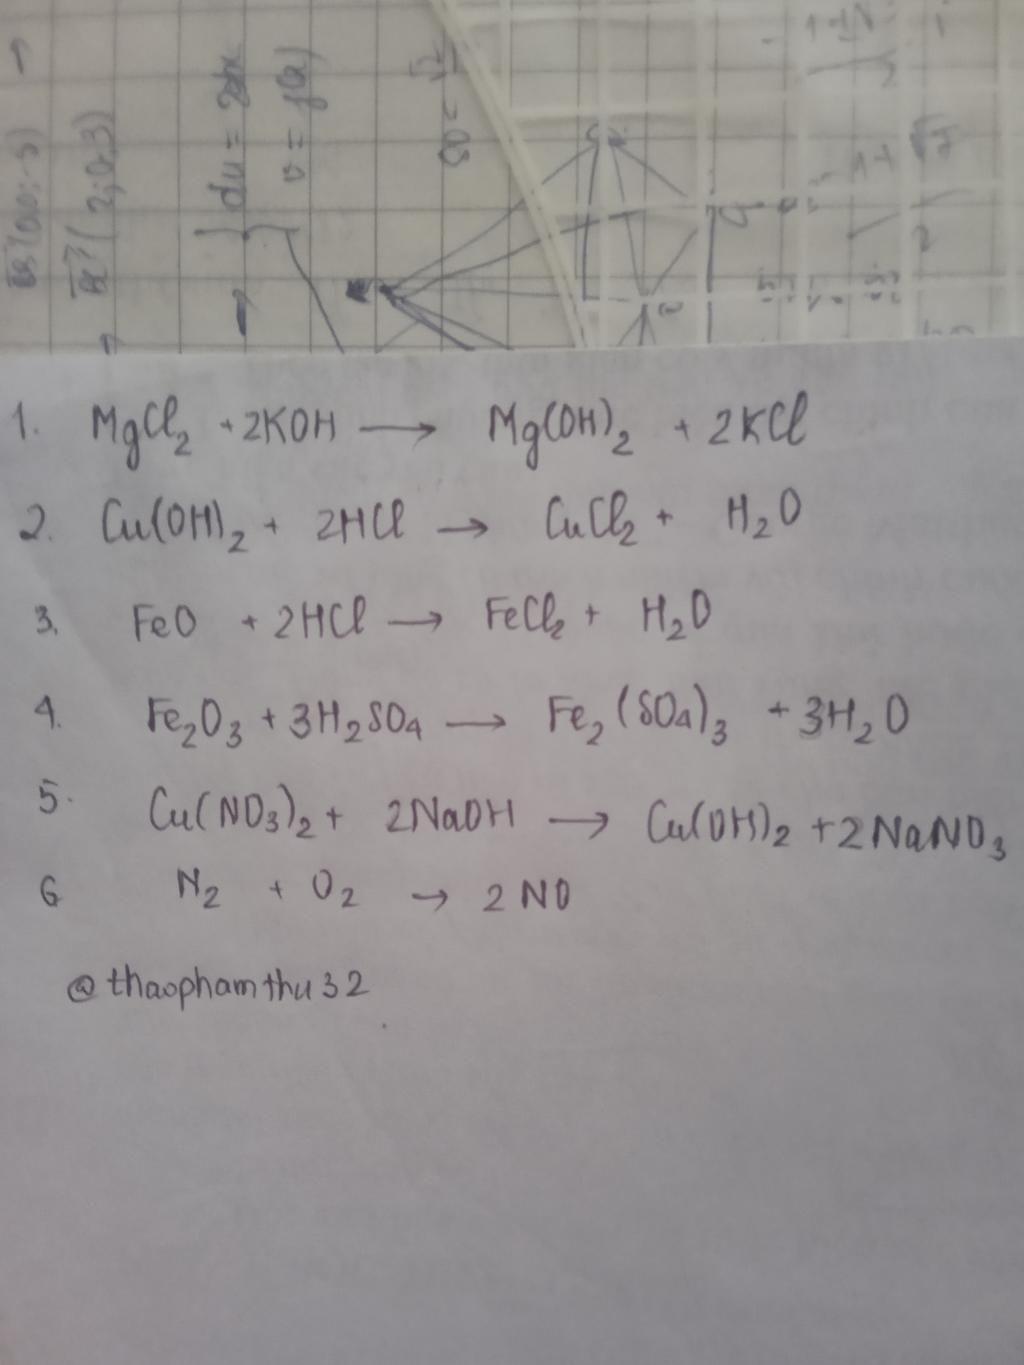 du = 2dx
v = f(x)
1. MgCl₂ + 2KOH → Mg(OH)₂ + 2KCl
2. Cu(OH)₂ + 2HCl → CuCl₂ + H₂O
3. FeO + 2HCl → FeCl₂ + H₂O
4. Fe₂O₃ + 3H₂SO₄ → Fe₂(SO₄)₃ + 3H₂O
5. Cu(NO₃)₂ + 2NaOH → Cu(OH)₂ + 2NaNO₃
6 N₂ + O₂ → 2NO
@thaophamthu32